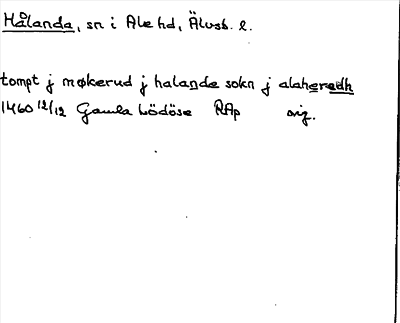 Hålanda, sn i Ale hd, Älvsb. l.
tompt j møkerud j halande sokn j alaheredh
1460 12/12 Gamla Lödöse RAp orig.